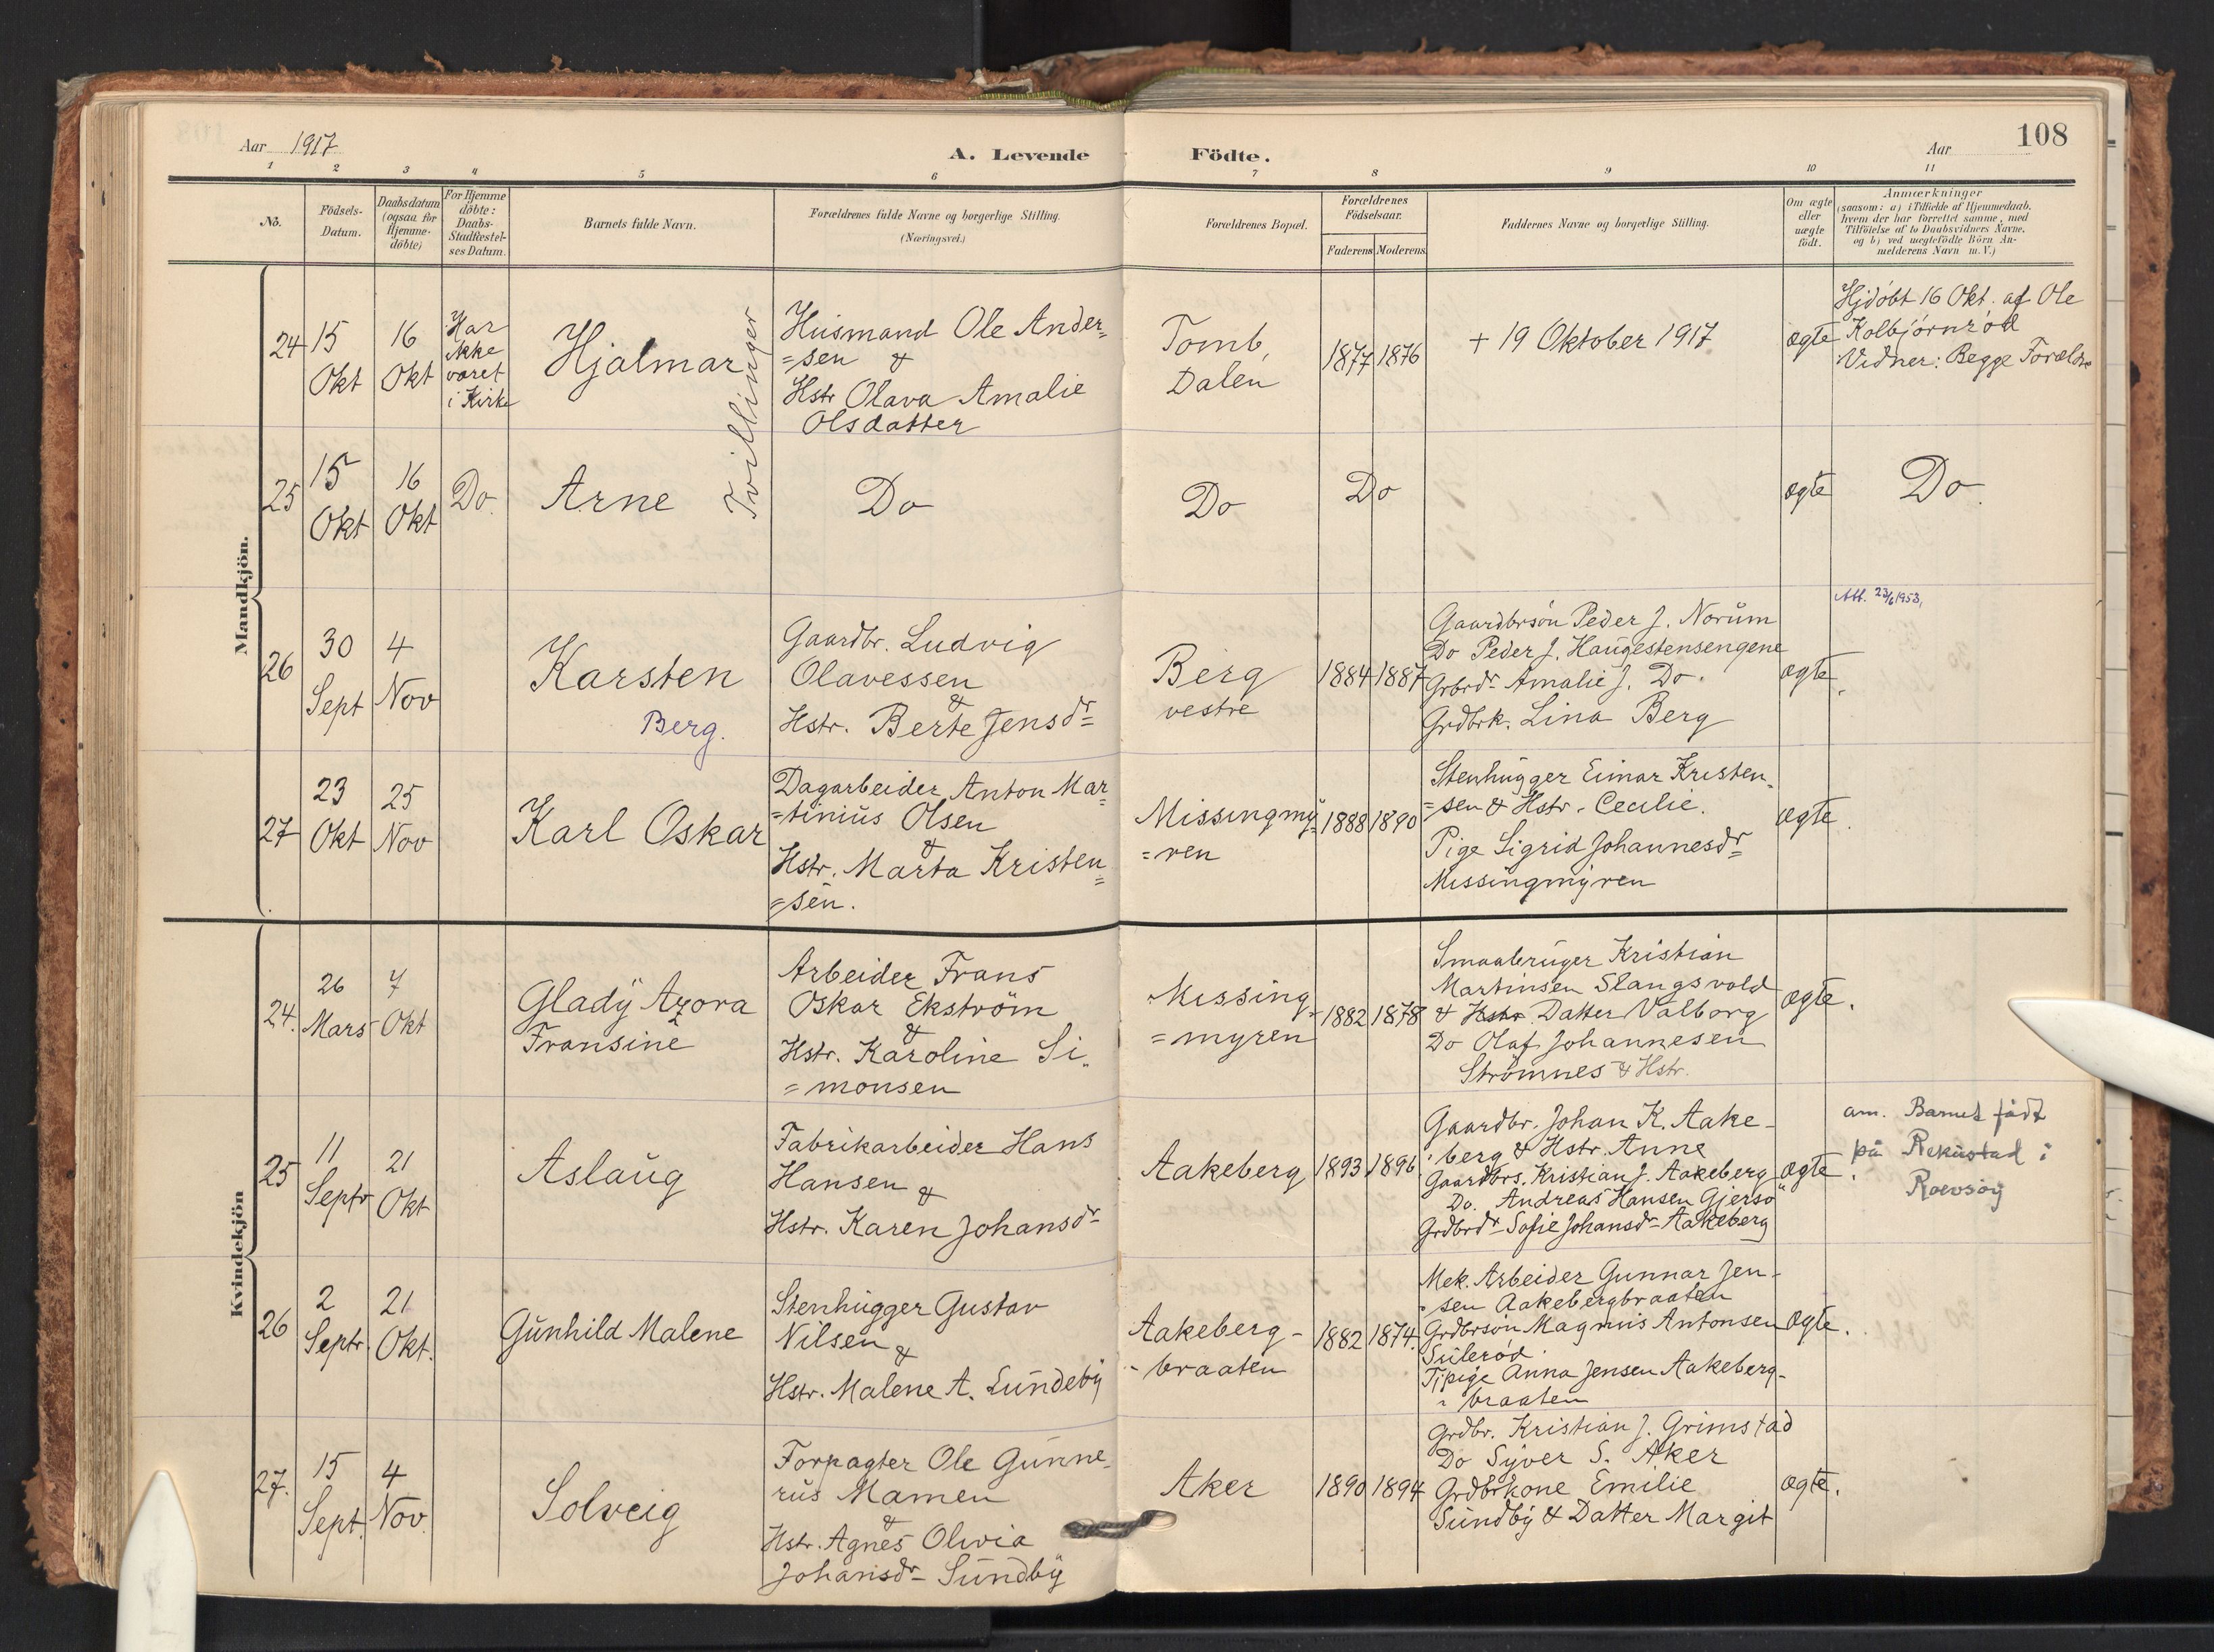 108
Aar 1917
A. Levende Födte.
Aar
1 2 3 4 5 6 7 8 9 10 11
No.
Födsels-
Datum.
Daabsdatum
(ogsaa for
Hjemme-
döbte)
For Hjemme
döbte:
Daabs-
Stadfæstel-
ses Datum.
Barnets fulde Navn.
Forældrenes fulde Navne og borgerlige Stilling.
(Næringsvei.)
Forældrenes Bopæl.
Forældrenes
Födselsaar.
Faderens Moderens
Faddernes Navne og borgerlige Stilling.
Om ægte
eller
uægte
födt.
Anmærkninger
(saasom: a) i Tilfælde af Hjemmedaab,
hvem der har forrettet samme, med
Tilföielse af to Daabsvidners Navne,
og b) ved uægtefödte Börn An-
melderens Navn m.V.)
Mandkjön.
24
15
Okt
16
Okt
Har
ikke
været
i Kirke
Hjalmar
Tvillinger
Husmand Ole Ander=
=sen &
Hstr Olava Amalie
Olsdatter
Tomb,
Dalen
1877 1876
+ 19 Oktober 1917
ægte
Hjdöbt 16 Okt. af Ole
Kolbjörnröd
Vidner: Begge Forældre
25
15
Okt
16
Okt
Do.
Arne
Do
Do
Do
ægte
Do
26
30
Sept
4
Nov
Karsten
Berg.
Gaardbr. Ludvig
Olavessen
&
Hstr. Berte Jensdr
Berg
vestre
1884 1887
Gaardbrsön Peder J. Norum
Do Peder J. Haugestensengene
Grbrdr Amalie J. Do.
Grdbrk. Lina Berg
ægte.
Att. 23/6 1953,
27
23
Okt
25
Nov
Karl Oskar
Dagarbeider Anton Mar=
=tinius Olsen
&
Hstr. Marta Kristen=
=sen.
Missingmy=
=ren
1888 1890
Stenhugger Einar Kristen=
=sen & Hstr. Cecilie.
Pige Sigrid Johannesdr
Missingmyren
ægte.
Kvindekjön
24.
26
Mars
7
Okt
Glady Azora
Fransine
Arbeider Frans
Oskar Ekström
&
Hstr. Karoline Si=
=monsen
Missing=
=myren
1882 1878
Smaabruger Kristian
Martinsen Slangsvold
& Hstr Datter Valborg
Do Olaf Johannesen
Strömnes & Hstr.
ægte.
25
11
Septr
21
Okt
Aslaug
Fabrikarbeider Hans
Hansen &
Hstr. Karen Johansdr
Aakeberg
1893 1896
Gaardbr. Johan K. Aake-
berg & Hstr. Anne
Gaardbrs. Kristian J. Aakeberg
Do. Andreas Hansen Gjersö
Grdbrdr Sofie Johansdr Aakeberg
ægte.
am. Barnet född
på Rekustad i
26
2
Septr.
21
Okt.
Gunhild Malene
Stenhugger Gustav
Nilsen &
Hstr. Malene A. Lundeby
Aakeberg-
-braaten
1882 1874.
Mek. Arbeider Gunnar Jen-
sen Aakebergbraaten
Grdbrsön Magnus Antonsen
Sulerød.
Tjpige Anna Jensen Aakeberg-
braaten
ægte.
27.
15
Sept.
4
Nov.
Solveig
Forpagter Ole Gunne-
rus Mamen
&
Hstr. Agnes Olivia
Johansdr Sundby
Aker
1890 1894
Grdbr. Kristian J. Grimstad
Do Syver S. Aker
Grdbrkone Emilie
Sundby & Datter Margit
ægte.